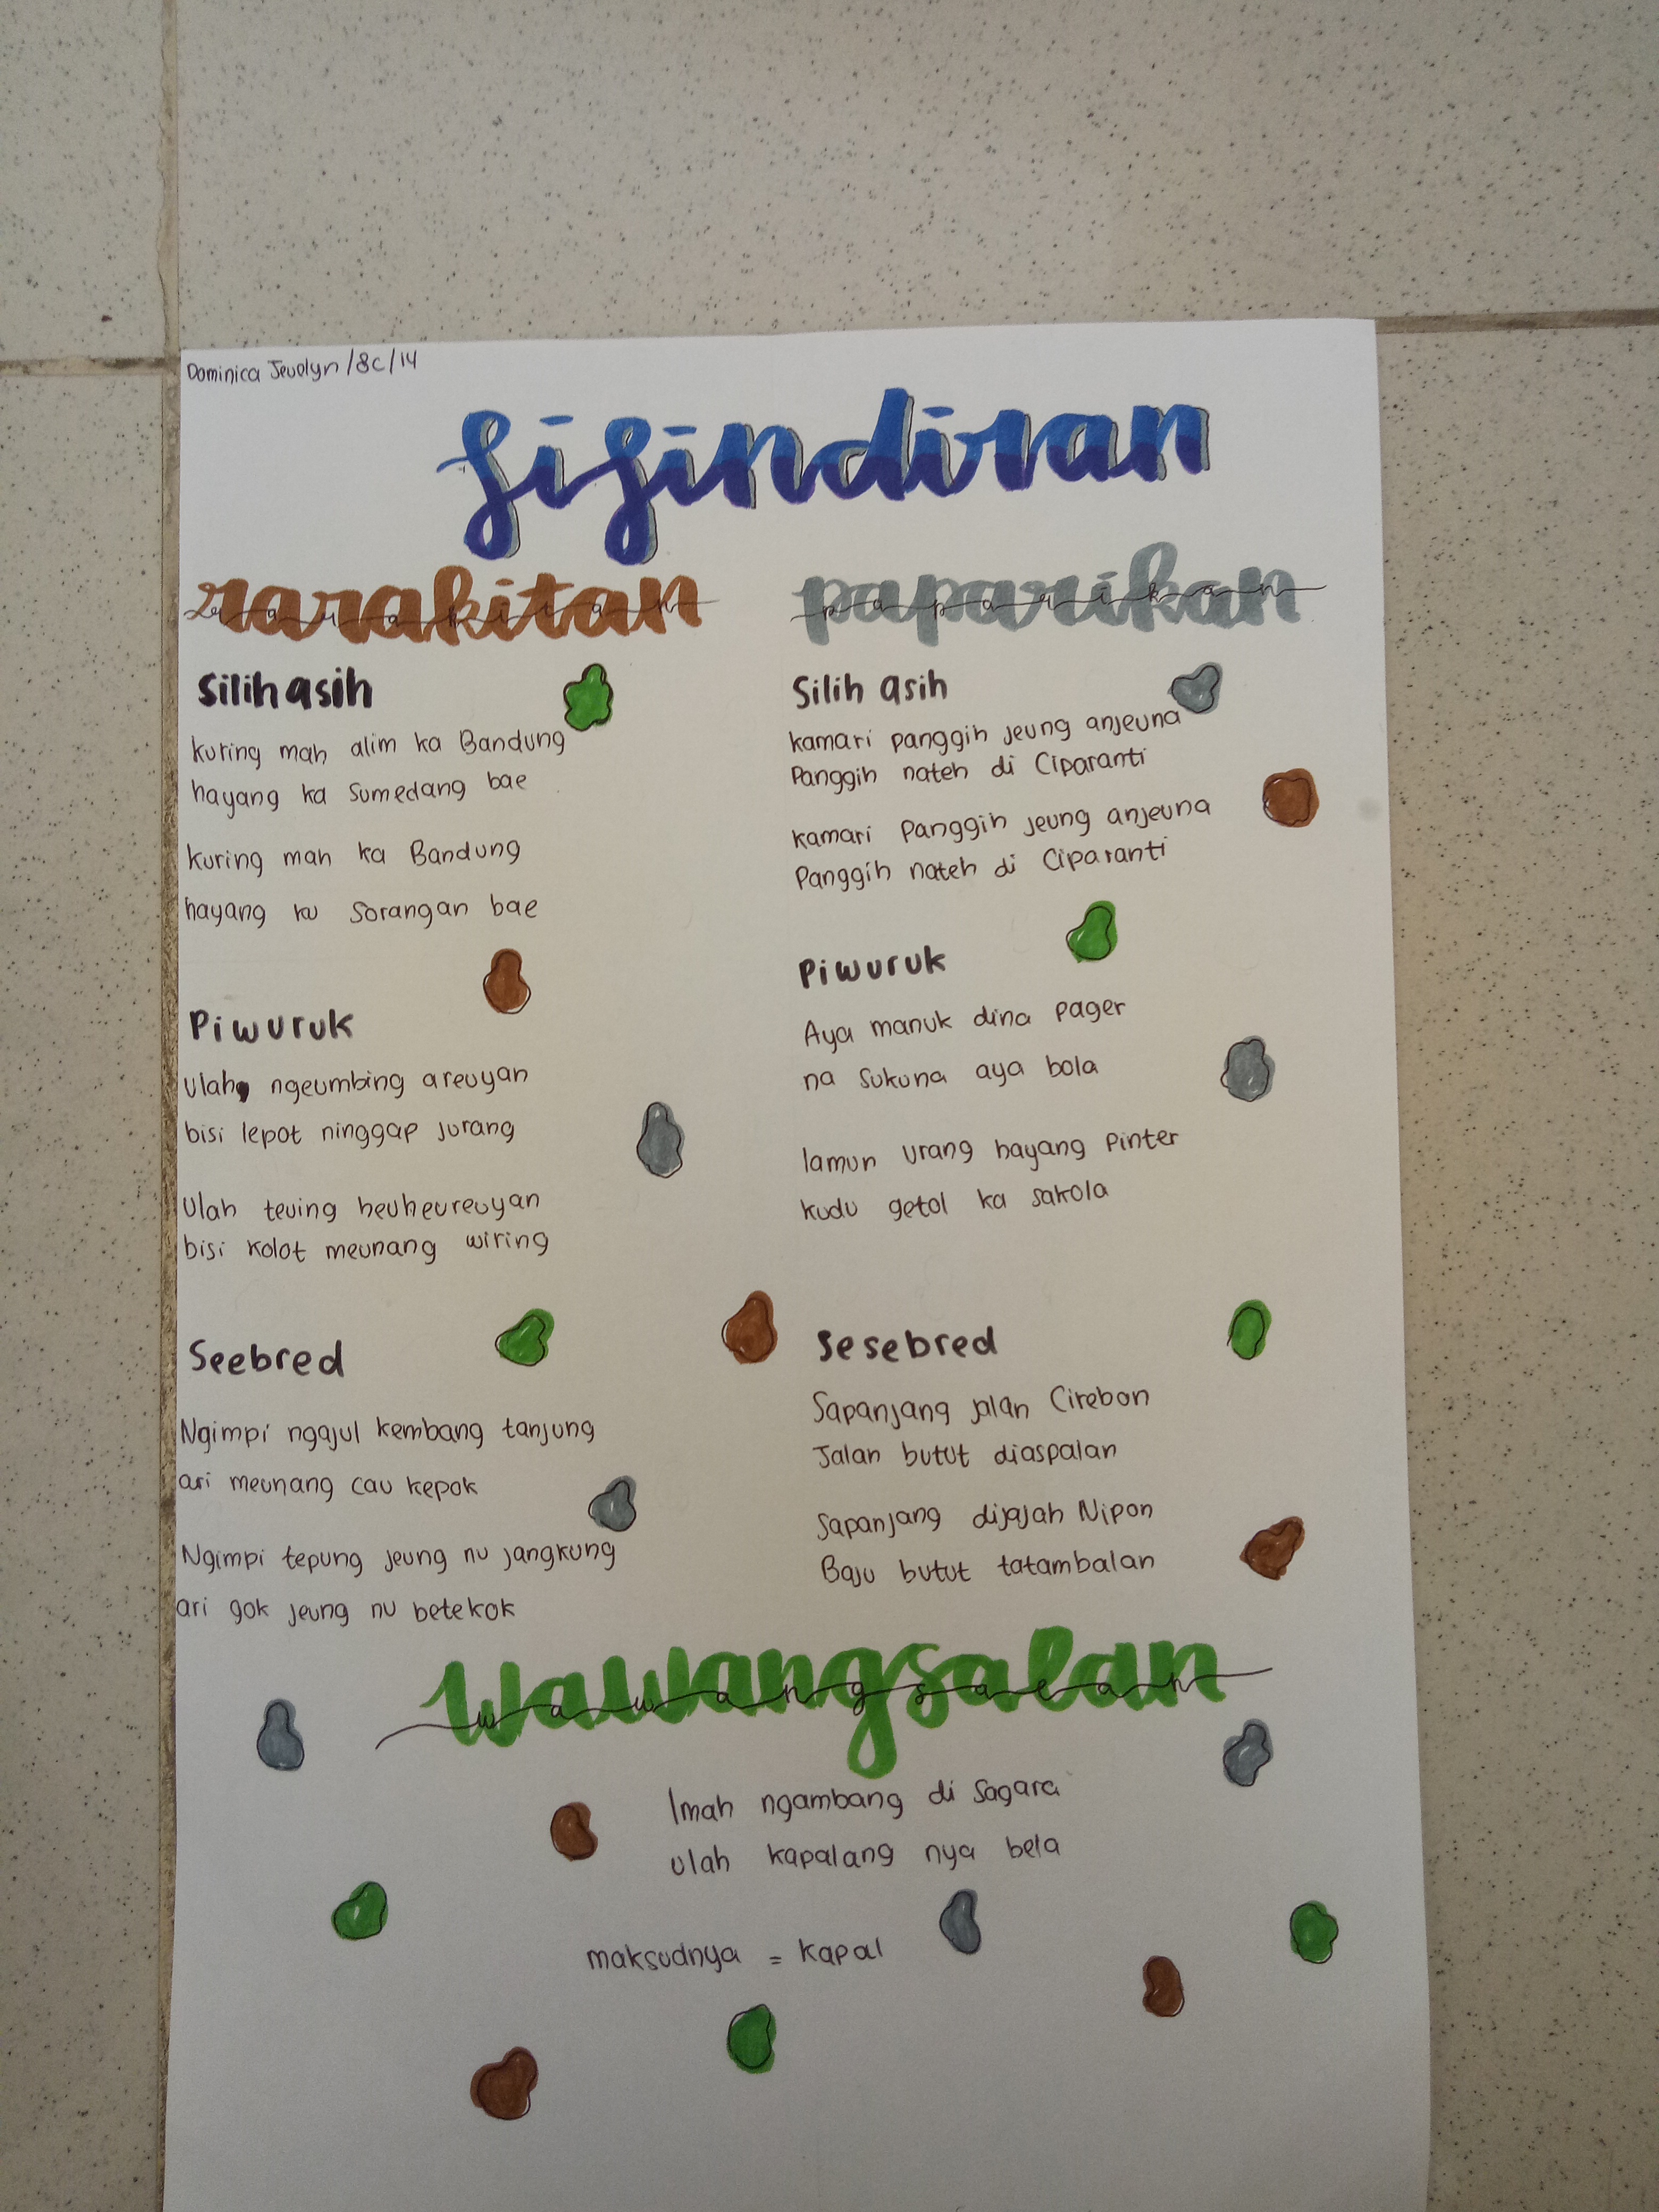 Dominica Jevelyn/8C/14
Sisindiran
rarakitan
rarakitan
Silih asih
kuring mah alim ka Bandung
hayang ka Sumedang bae
kuring mah ka Bandung
hayang ka Sorangan bae
Piwuruk
Ulah ngeumbing areuyan
bisi lepot ninggap jurang
Ulah teuing heuheureuyan
bisi kolot meunang wiring
Seebred
Ngimpi ngajul kembang tanjung
ari meunang cau kepok
Ngimpi tepung jeung nu jangkung
ari gok jeung nu betekok
paparikan
paparikan
Silih asih
kamari panggih jeung anjeuna
Panggih nateh di Ciparanti
kamari Panggih jeung anjeuna
Panggih nateh di Ciparanti
Piwuruk
Aya manuk dina pager
na sukuna aya bola
lamun urang hayang Pinter
kudu getol ka sakola
Sesebred
Sapanjang jalan Cirebon
Jalan butut diaspalan
Sapanjang dijajah Nipon
Baju butut tatambalan
Wawangsalan
wawangsalan
Imah ngambang di Sagara
ulah kapalang nya bela
maksudnya = kapal